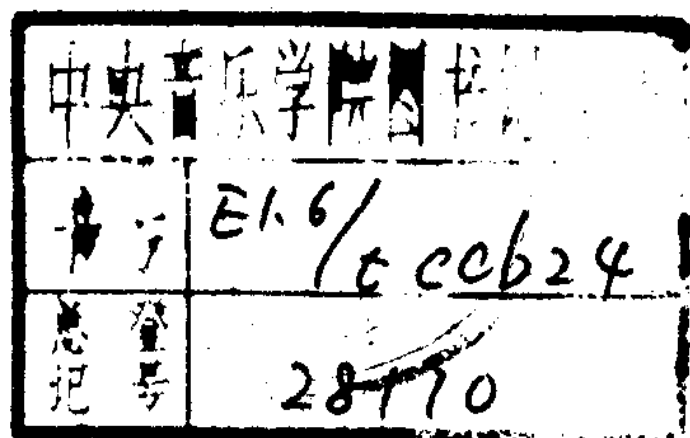 中央音乐学院图书馆
书号 E1.6/tccb24
总登记号 28170